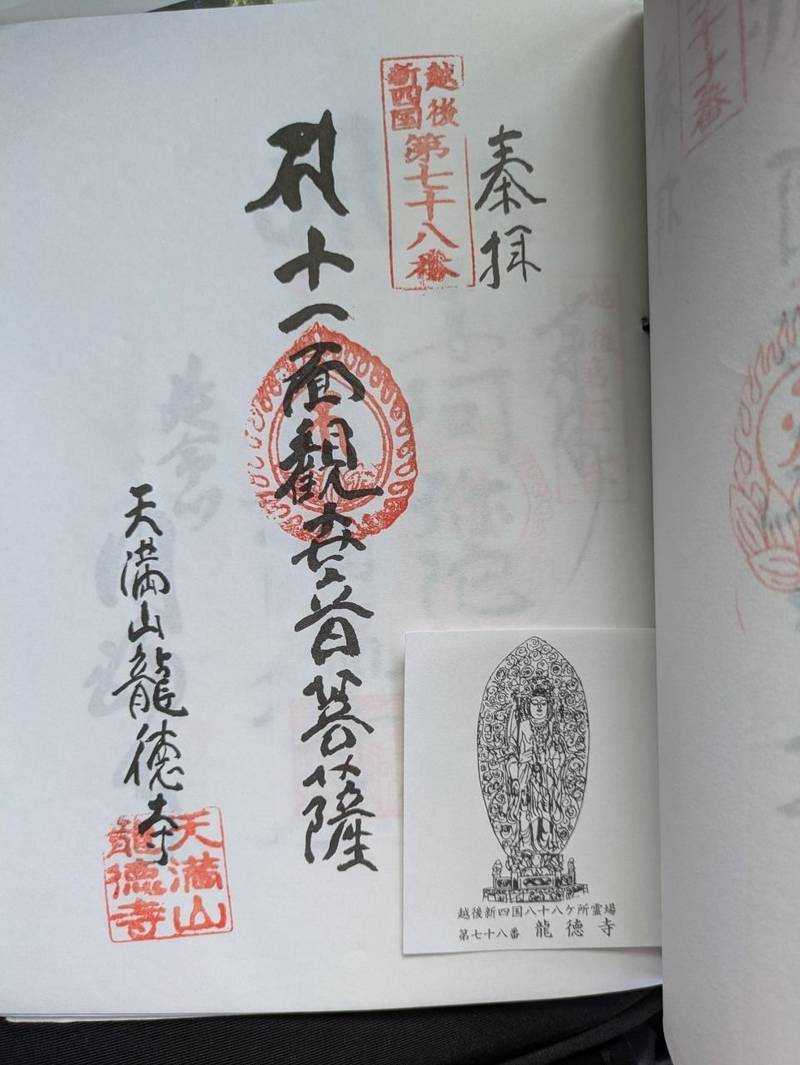 奉拝
越後
新四国
第七十八番
十一面観世音菩薩
天満山龍徳寺
天満山
龍徳寺
越後新四国八十八ケ所霊場
第七十八番 龍徳寺
十番